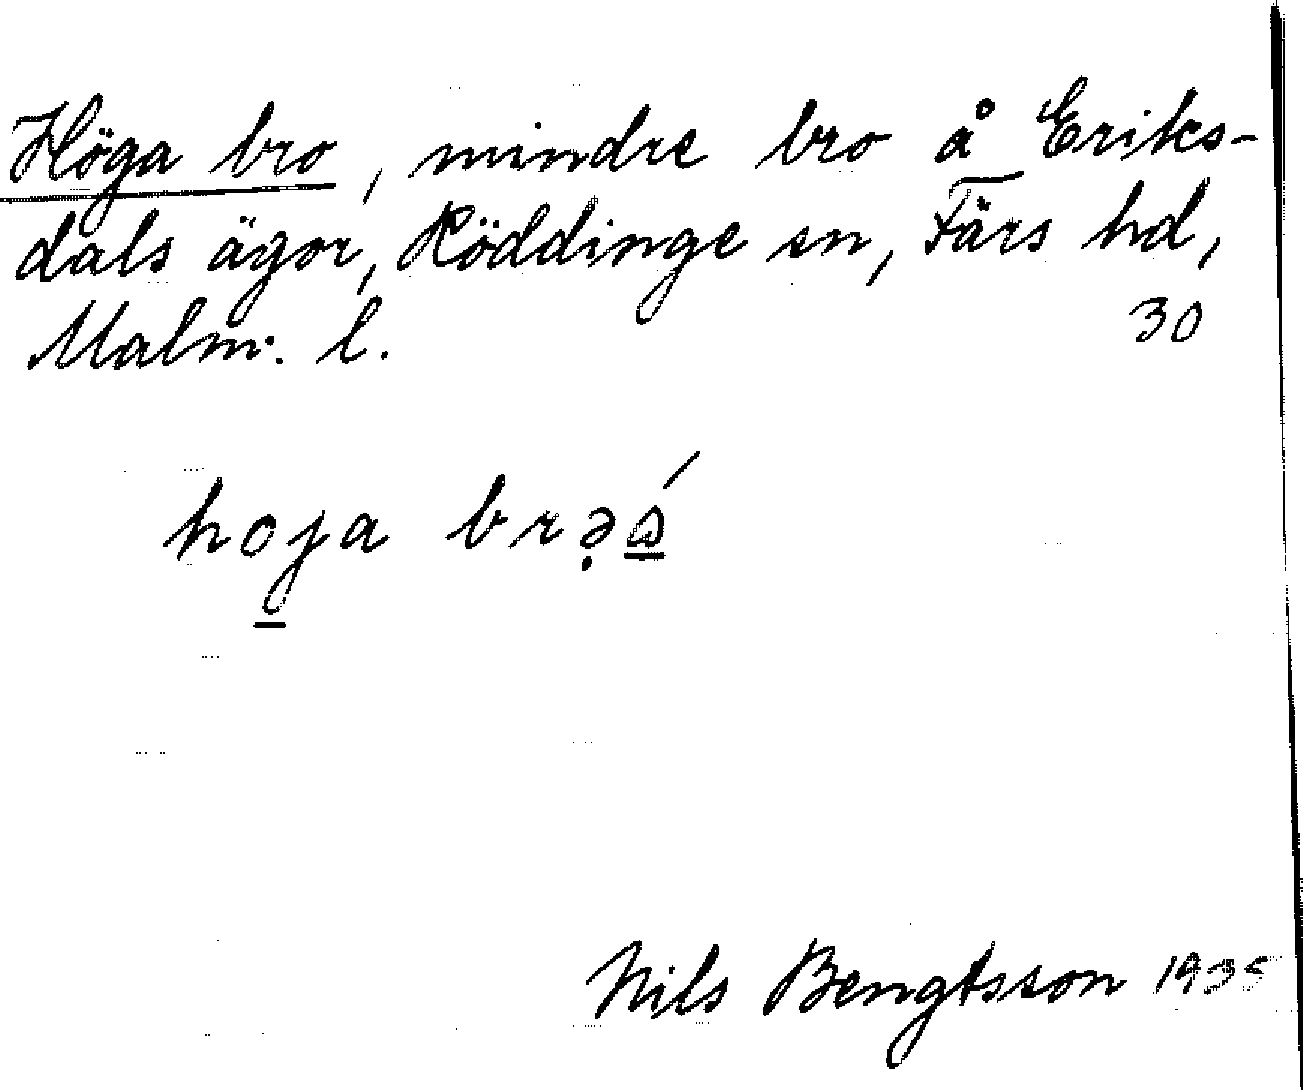 Höga bro, mindre bro å Eriks-
dals ägor, Röddinge sn, Färs hd,
Malm. l. 30
hoja brə̣ó
Nils Bengtsson 1935